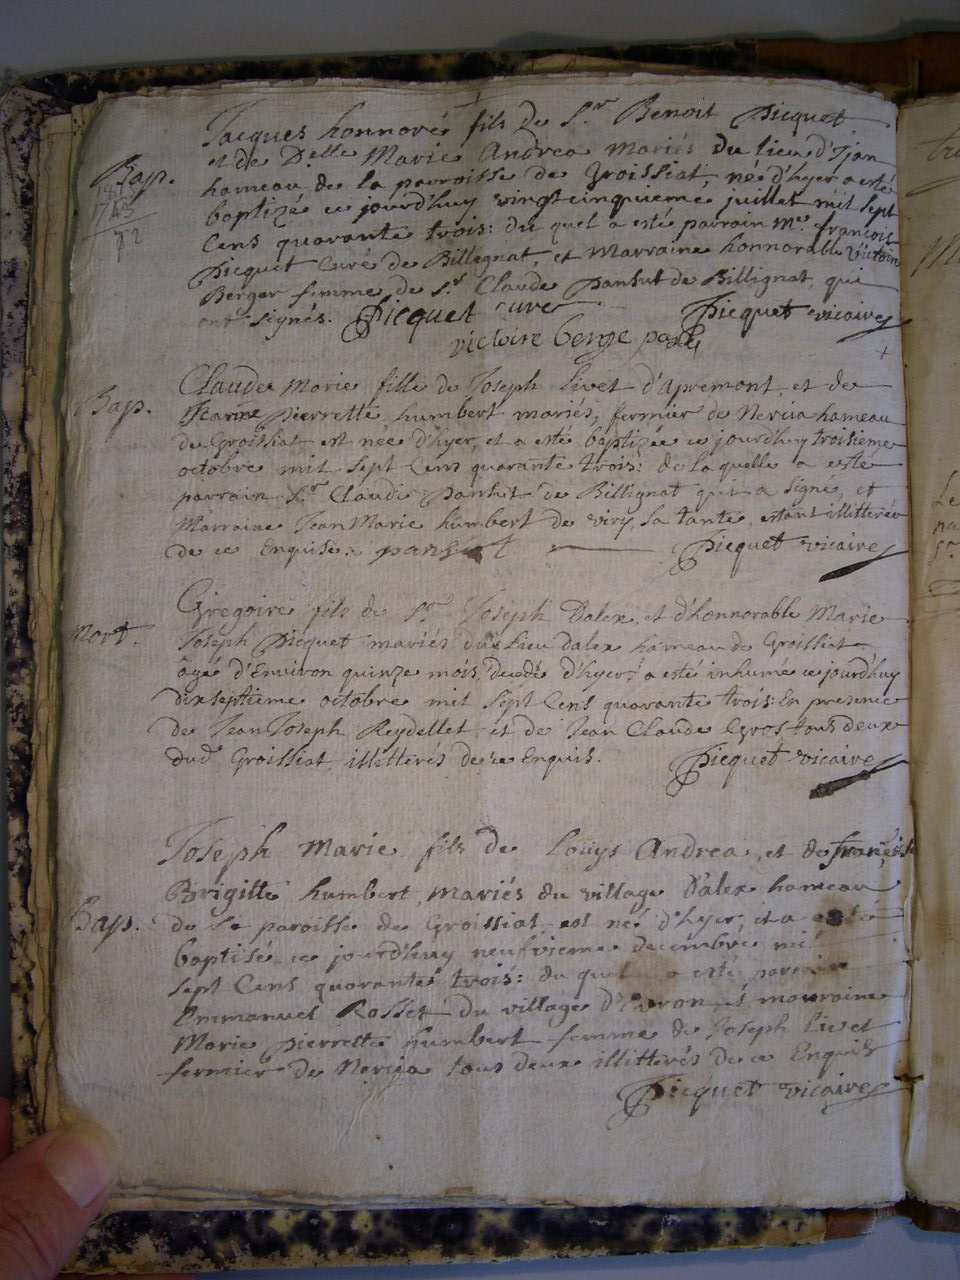 Jacques honnoré fils de S.r Benoit Picquet
et de Delle Marie Andrea mariés du lieu d'Ijan
Bap.
hameau de la parroisse de Groissiat, né d'hyer a esté
1743
72
baptizé ce jourd'huy vingt cinquieme juillet mil sept
Cens quarante trois: du quel a esté parrain m.e francois
Picquet Curé de Billegnat, et marraine honnorable Victoire
Berger femme de S.r Claude Pansut de Billignat, qui
ont signés. Picquet curé Picquet vicaire
victoire berge
Claude Marie fille de Joseph Livet d'apremont, et de
Bap.
Jeanne pierrette humbert mariés, fermier de Nercia hameau
de Groissiat est née d'hyer, et a esté baptizée ce jourd'huy troisieme
octobre mil sept Cens quarante trois: de la quelle a esté
parrain S.r Claude Pansut de Billignat qui a signé, et
Marraine JeanMarie humbert de viry, sa tante, estant illitterée
de ce Enquise: pansut Picquet vicaire
Gregoire fils de S.r Joseph Dalex, et d'honnorable Marie
mort.
Joseph Picquet mariés du lieu dalex hameau de Groissiat,
âgé d'Environ quinze mois, decedé d'hyer, a esté inhumé ce jourd'huy
dixseptieme octobre mil Sept Cens quarante trois: En presence
de JeanJoseph Reydellet et de Jean Claude Gros tous deux
dud. Groissiat, illitterés de ce Enquis. Picquet vicaire
Joseph Marie fils de Loüys Andrea, et de françoise
Brigitte humbert, mariés du village Dalex hameau
Bap.
de la paroisse de Groissiat est né d'hyer, et a esté
baptisé ce jourd'huy neufvieme decembre mil
sept Cens quarante trois: du quel a esté parrain
Emmanuel Rosset du village marraine
Marie pierrette humbert femme de Joseph Livet
fermier de Nercia tous deux illitterés de ce Enquis
Picquet vicaire